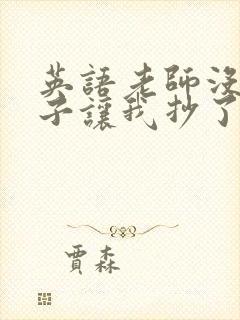 英語老師沒
子讓我抄了
賈森